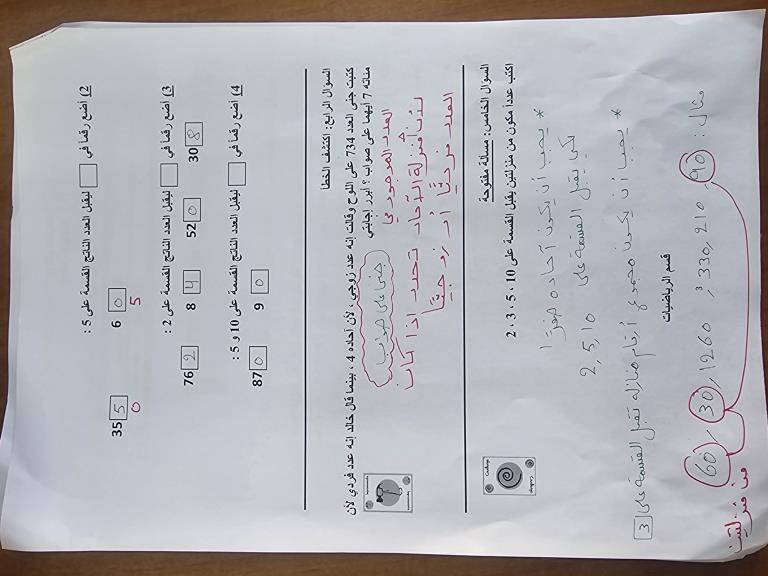 2) أضع رقماً في □ ليقبل العدد الناتج القسمة على 5 :
35 5 6 0
0 5
3) أضع رقماً في □ ليقبل العدد الناتج القسمة على 2 :
76 2 8 4 52 0 30 8
4) أضع رقماً في □ ليقبل العدد الناتج القسمة على 10 و 5 :
87 0 9 0
السؤال الرابع: اكتشف الخطا
كتبت جنى العدد 734 على اللوح وقالت إنه عدد زوجي ، لأن آحاده 4 ، بينما قال خالد إنه عدد فردي لأن
مئاته 7 أيهما على صواب ؟ أبرر إجابتي
جنى على صواب
العدد الموجود في
لأن منزلة الآحاد تحدد إذا كان
العدد فرديًّا أو زوجيًّا
السؤال الخامس: مسألة مفتوحة
اكتب عدداً مكون من منزلتين يقبل القسمة على 10 ، 5 ، 3 ، 2
* يجب أن يكون آحاده صفرًا
لكي يقبل القسمة على 2,5,10
* يجب أن يكون مجموع أرقام منازله تقبل القسمة على 3
قسم الرياضيات
مثال : 90, 210, 330, 1260, 30, 60
من منزلتين